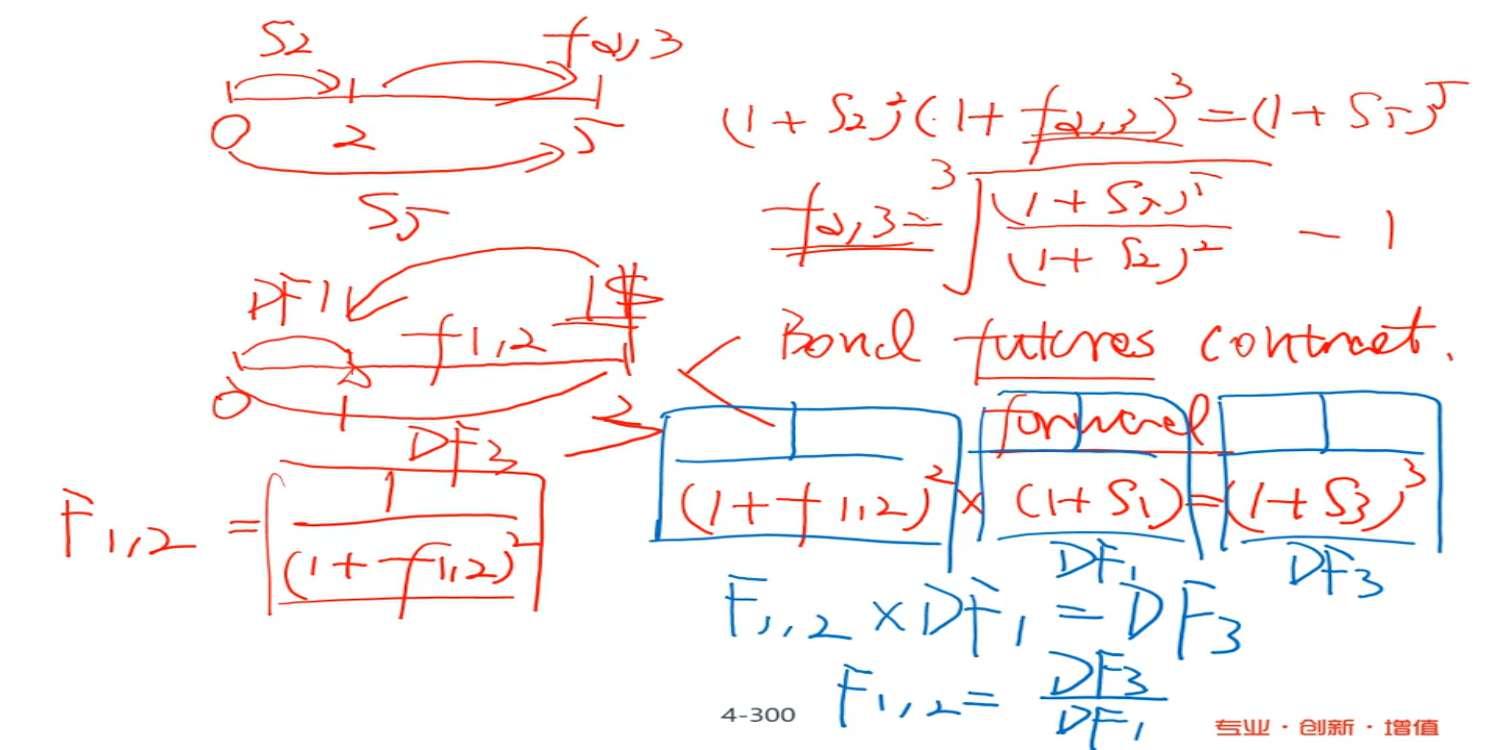 S2 f2,3
0 2 5
S5
(1+S2)²(1+f2,3)³=(1+S5)⁵
f2,3=³√((1+S5)⁵/(1+S2)²) - 1
DF1 1$
f1,2
0 1 3
DF3
Bond futures contract.
forward
F1,2 = 1/(1+f1,2)²
(1+f1,2)² × (1+S1) = (1+S3)³
DF1 DF3
F1,2 × DF1 = DF3
F1,2 = DF3/DF1
4-300
专业·创新·增值